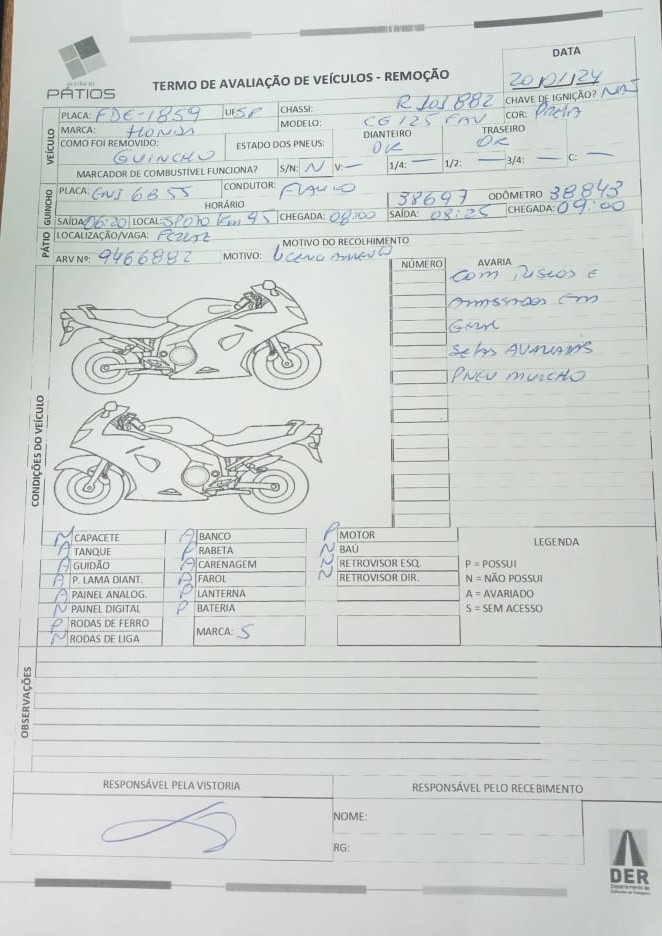 GESTÃO DE
PÁTIOS
TERMO DE AVALIAÇÃO DE VEÍCULOS - REMOÇÃO
DATA
20/01/24
VEÍCULO
PLACA: FDE-1859 UF: SP CHASSI: R 101882 CHAVE DE IGNIÇÃO? NÃO
MARCA: HONDA MODELO: CG 125 FAN COR: PRETA
COMO FOI REMOVIDO: GUINCHO ESTADO DOS PNEUS: DIANTEIRO OK TRASEIRO OK
MARCADOR DE COMBUSTÍVEL FUNCIONA? S/N: N V: — 1/4: — 1/2: — 3/4: — C: —
GUINCHO
PLACA: GNI 6B55 CONDUTOR: FLAVIO
HORÁRIO ODÔMETRO
SAÍDA: 06:20 LOCAL: SP070 Km 95 CHEGADA: 08:00 SAÍDA: 38697 08:25 CHEGADA: 38843 09:00
PÁTIO
LOCALIZAÇÃO/VAGA: MOTIVO DO RECOLHIMENTO
ARV Nº: 9466882 MOTIVO: LICENCIAMENTO
CONDIÇÕES DO VEÍCULO
NÚMERO AVARIA
COM RISCOS E
AMASSADOS EM
GERAL
SETAS AVARIADAS
PNEU MURCHO
N CAPACETE A BANCO P MOTOR
A TANQUE P RABETA N BAÚ
A GUIDÃO A CARENAGEM N RETROVISOR ESQ.
A P. LAMA DIANT. A FAROL N RETROVISOR DIR.
A PAINEL ANALOG. P LANTERNA
N PAINEL DIGITAL P BATERIA
P RODAS DE FERRO MARCA: S
N RODAS DE LIGA
LEGENDA
P = POSSUI
N = NÃO POSSUI
A = AVARIADO
S = SEM ACESSO
OBSERVAÇÕES
RESPONSÁVEL PELA VISTORIA RESPONSÁVEL PELO RECEBIMENTO
NOME:
RG:
DER